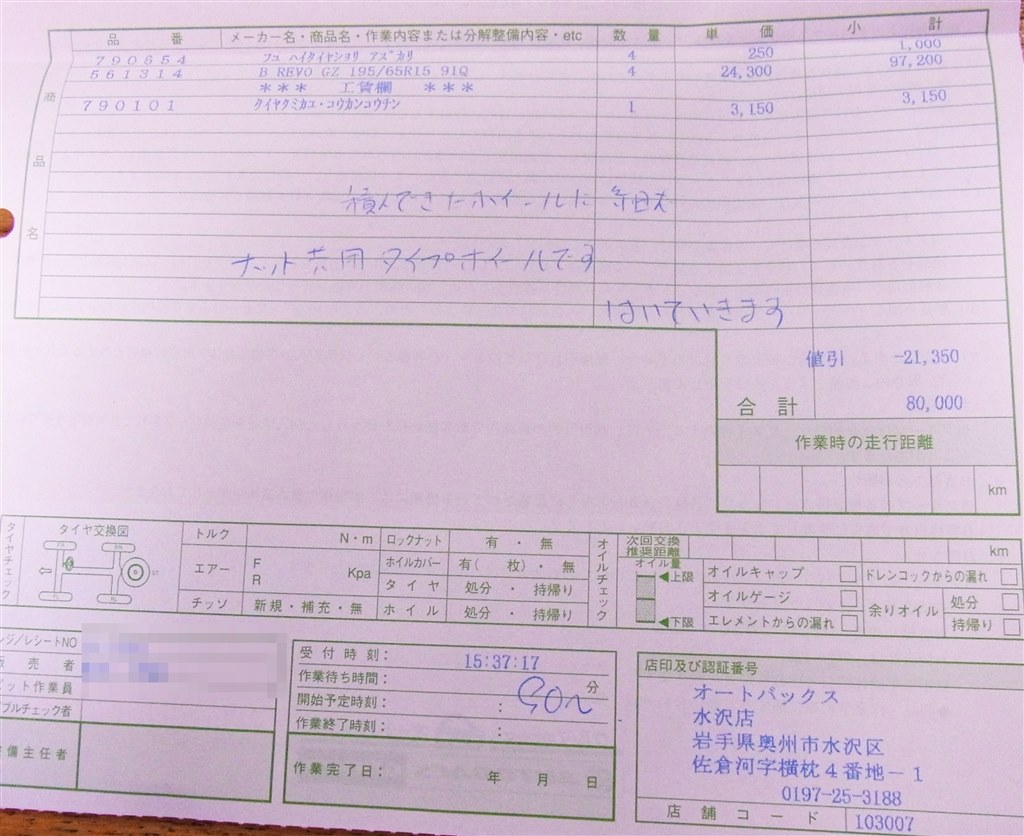 品 番 メーカー名・商品名・作業内容または分解整備内容・etc 数 量 単 価 小 計
790654 フユ ハイタイヤシヨリ アズカリ 4 250 1,000
561314 B REVO GZ 195/65R15 91Q 4 24,300 97,200
*** 工賃欄 ***
790101 タイヤクミカエ・コウカンコウチン 1 3,150 3,150
商品名
積んできたホイールに 組む
ナット共用タイプホイールです
はいていきます
値引 -21,350
合 計 80,000
作業時の走行距離
km
タイヤチェック
タイヤ交換図
トルク N・m
エアー F R Kpa
チッソ 新規・補充・無
ロックナット 有 ・ 無
ホイルカバー 有( 枚)・ 無
タ イ ヤ 処分 ・ 持帰り
ホ イ ル 処分 ・ 持帰り
オイルチェック
次回交換推奨距離 km
オイル量
◀上限
◀下限
オイルキャップ □
オイルゲージ □
エレメントからの漏れ □
ドレンコックからの漏れ □
余りオイル 処分 □
持帰り □
ジ/レシートNO
売 者
ット作業員
ブルチェック者
備主任者
受 付 時 刻： 15:37:17
作業待ち時間： 分
開始予定時刻： ：
作業終了時刻： ：
作業完了日： 年 月 日
店印及び認証番号
オートバックス
水沢店
岩手県奥州市水沢区
佐倉河字横枕4番地-1
0197-25-3188
店 舗 コ ー ド 103007